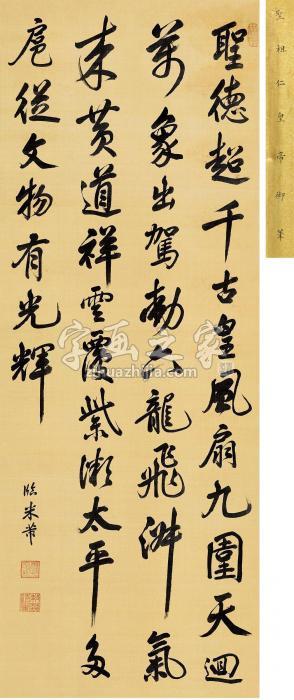 聖祖仁皇帝御筆
聖德超千古皇風扇九圍天迴
萬象出駕動六龍飛淑氣
来黃道祥雲覆紫微太平多
扈從文物有光輝
臨米芾
字画之家
zihuazhijia.com